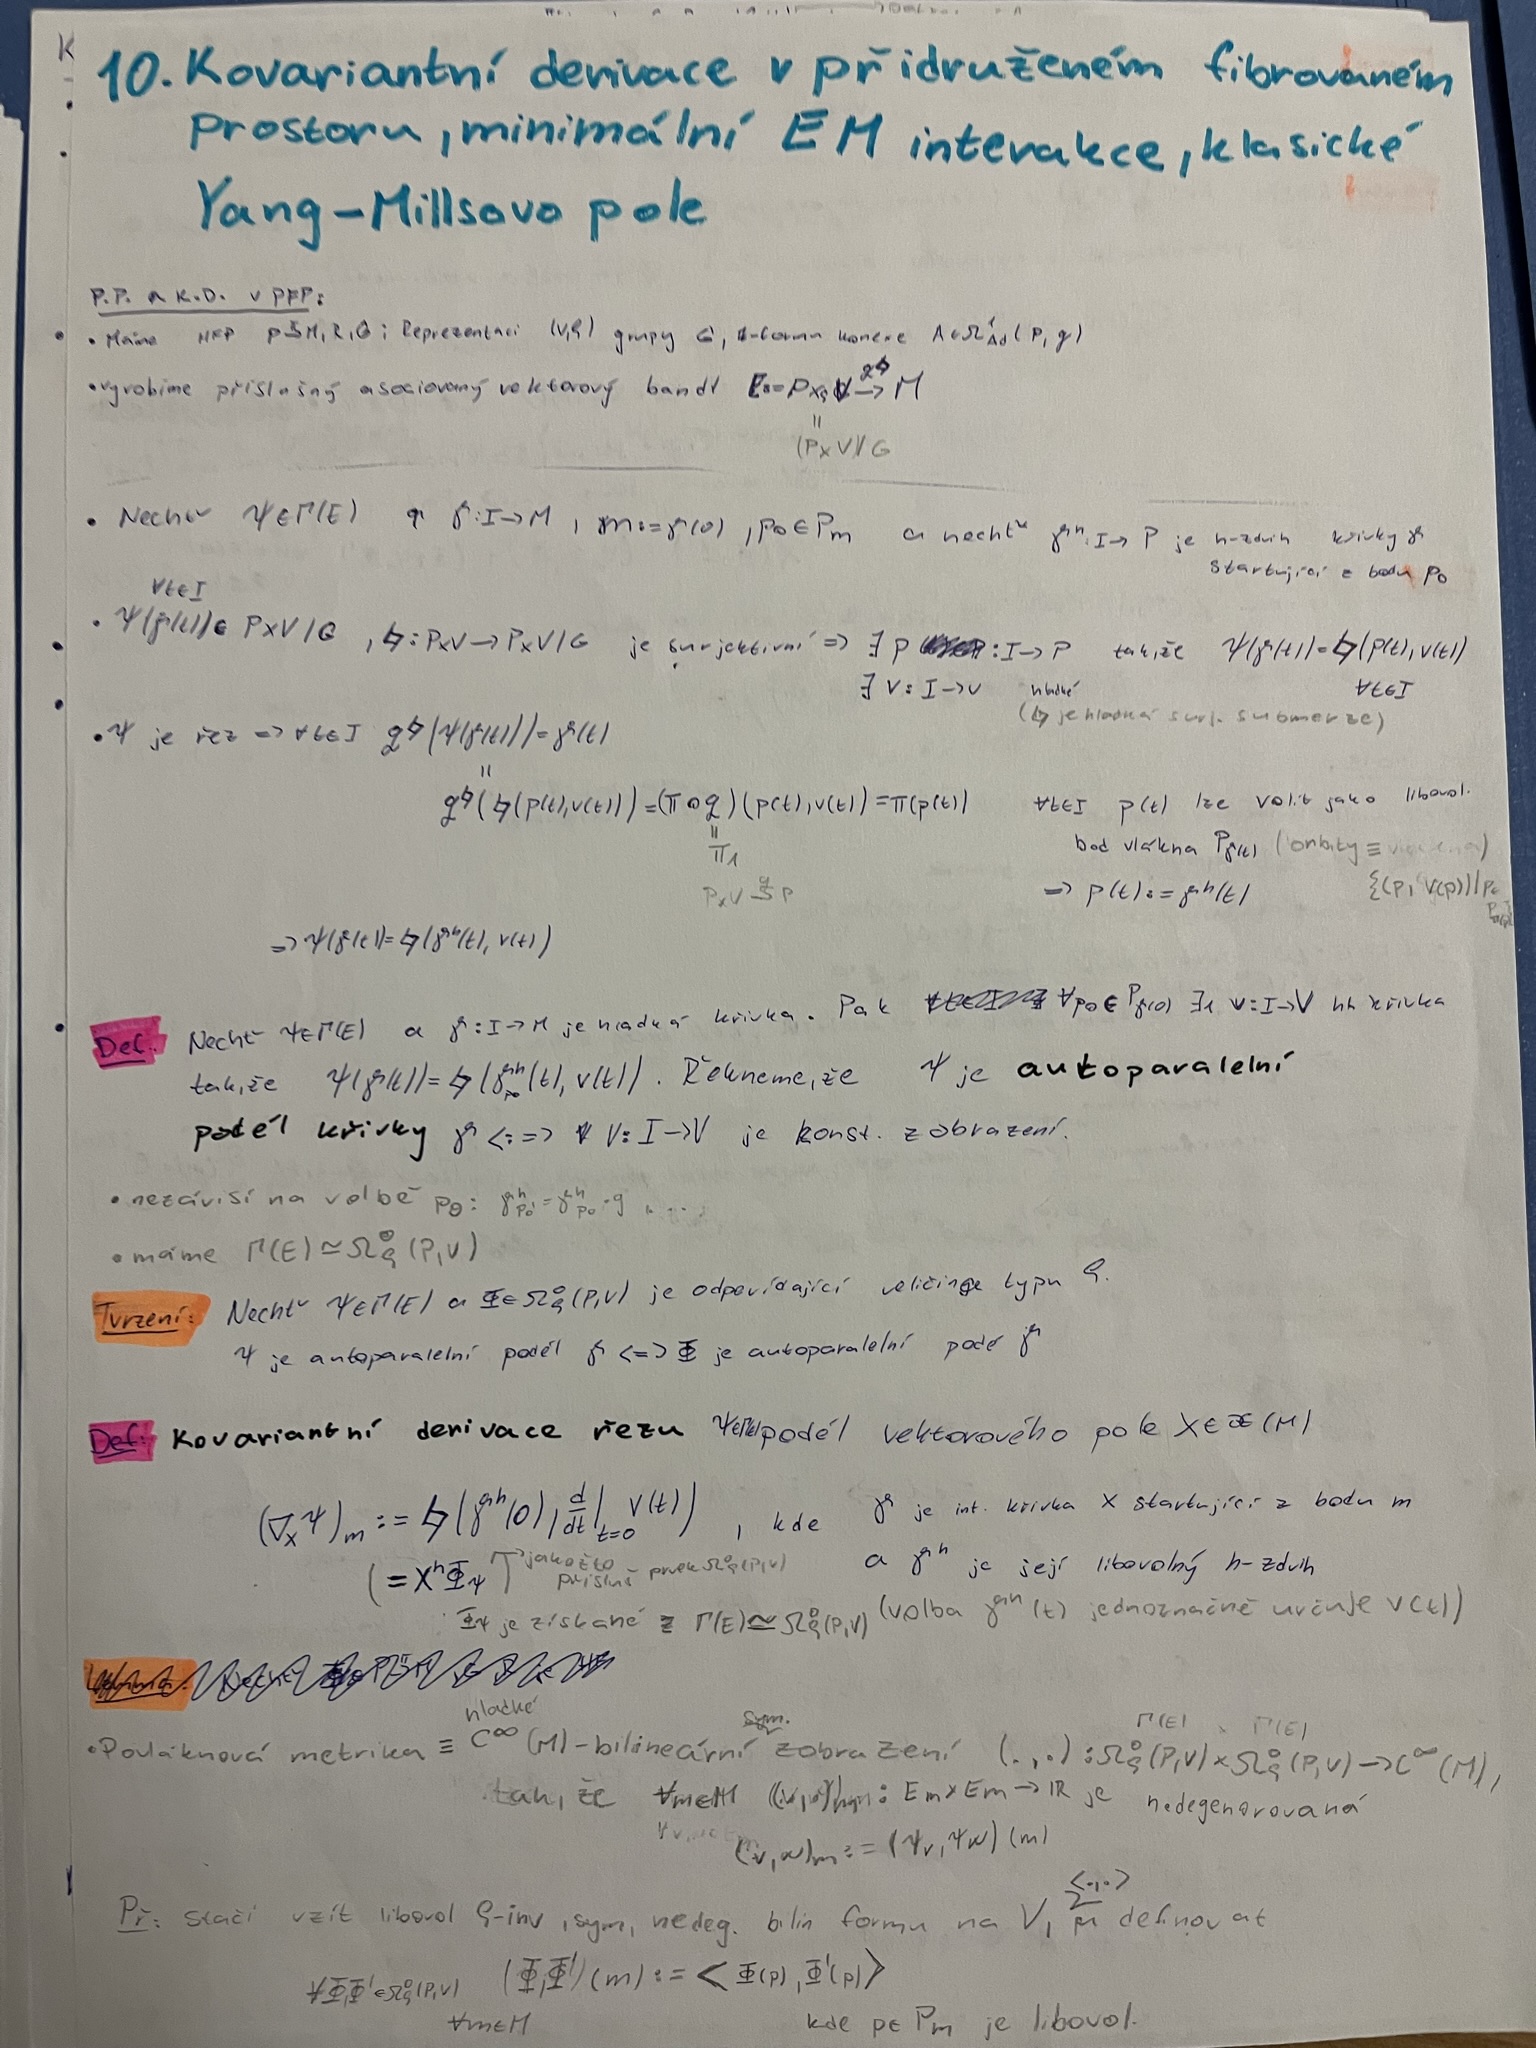 10. Kovariantní derivace v přidruženém fibrovaném
prostoru, minimální EM interakce, klasické
Yang-Millsovo pole
P.P. a K.D. v PFP:
• Máme HFP P→M, R, G; Reprezentaci (V,ρ) grupy G, 1-formu konexe A∈Ω¹_Ad(P,g)
• vyrobíme příslušný asociovaný vektorový bandl E:=P×_ρ V → M
=
(P×V)/G
• Nechť Ψ∈Γ(E) a γ:I→M, m:=γ(0), p₀∈P_m a nechť γ^h:I→P je h-zdvih křivky γ
startující z bodu p₀
∀t∈I
• Ψ(γ(t))∈ P×V/G, ϟ:P×V→P×V/G je surjektivní => ∃ p :I→P takže Ψ(γ(t))=ϟ(p(t),v(t))
∃ v:I→V hladké ∀t∈I
(ϟ je hladká surj. submerze)
• Ψ je řez => ∀t∈I q^ϟ(Ψ(γ(t)))=γ(t)
=
q^ϟ(ϟ(p(t),v(t)))=(π∘q)(p(t),v(t))=π(p(t)) ∀t∈I p(t) lze volit jako libovol.
= bod vlákna P_γ(t) (orbity ≡
π₁
P×V →^q P => p(t):=γ^h(t) {(p,v(p))|p∈
=> Ψ(γ(t))=ϟ(γ^h(t),v(t))
Def.: Nechť Ψ∈Γ(E) a γ:I→M je hladká křivka. Pak ∀p₀∈P_γ(0) ∃₁ v:I→V hl. křivka
tak, že Ψ(γ(t))=ϟ(γ^h_p₀(t),v(t)). Řekneme, že Ψ je autoparalelní
podél křivky γ <:=> v:I→V je konst. zobrazení.
• nezávisí na volbě p₀: γ^h_p₀'=γ^h_p₀·g ....
• máme Γ(E)≃Ω⁰_ρ(P,V)
Tvrzení: Nechť Ψ∈Γ(E) a Φ∈Ω⁰_ρ(P,V) je odpovídající veličina typu ρ.
Ψ je autoparalelní podél γ <=> Φ je autoparalelní podé γ
Def.: Kovariantní derivace řezu Ψ∈Γ(E) podél vektorového pole X∈𝔛(M)
(∇_X Ψ)_m := ϟ(γ^h(0), d/dt|_{t=0} v(t)), kde γ je int. křivka X startující z bodu m
(=X^h Φ_Ψ jakožto a γ^h je její libovolný h-zdvih
přísluš prvek Ω⁰_ρ(P,V)
Φ_Ψ je získané z Γ(E)≃Ω⁰_ρ(P,V) (volba γ^h(t) jednoznačně určuje v(t))
hladké sym. Γ(E) × Γ(E)
• Povláknová metrika ≡ C^∞(M)-bilineární zobrazení (.,.):Ω⁰_ρ(P,V)×Ω⁰_ρ(P,V)→C^∞(M),
tak, že ∀m∈M (.,.)_m: E_m×E_m→ℝ je nedegenerovaná
(v,w)_m:=(Ψ_v,Ψ_w)(m)
<.,.>
Př: stačí vzít libovol ρ-inv, sym, nedeg. bilin formu na V, a definovat
∀Φ,Φ'∈Ω⁰_ρ(P,V) (Φ,Φ')(m):=<Φ(p),Φ'(p)>
∀m∈M kde p∈P_m je libovol.